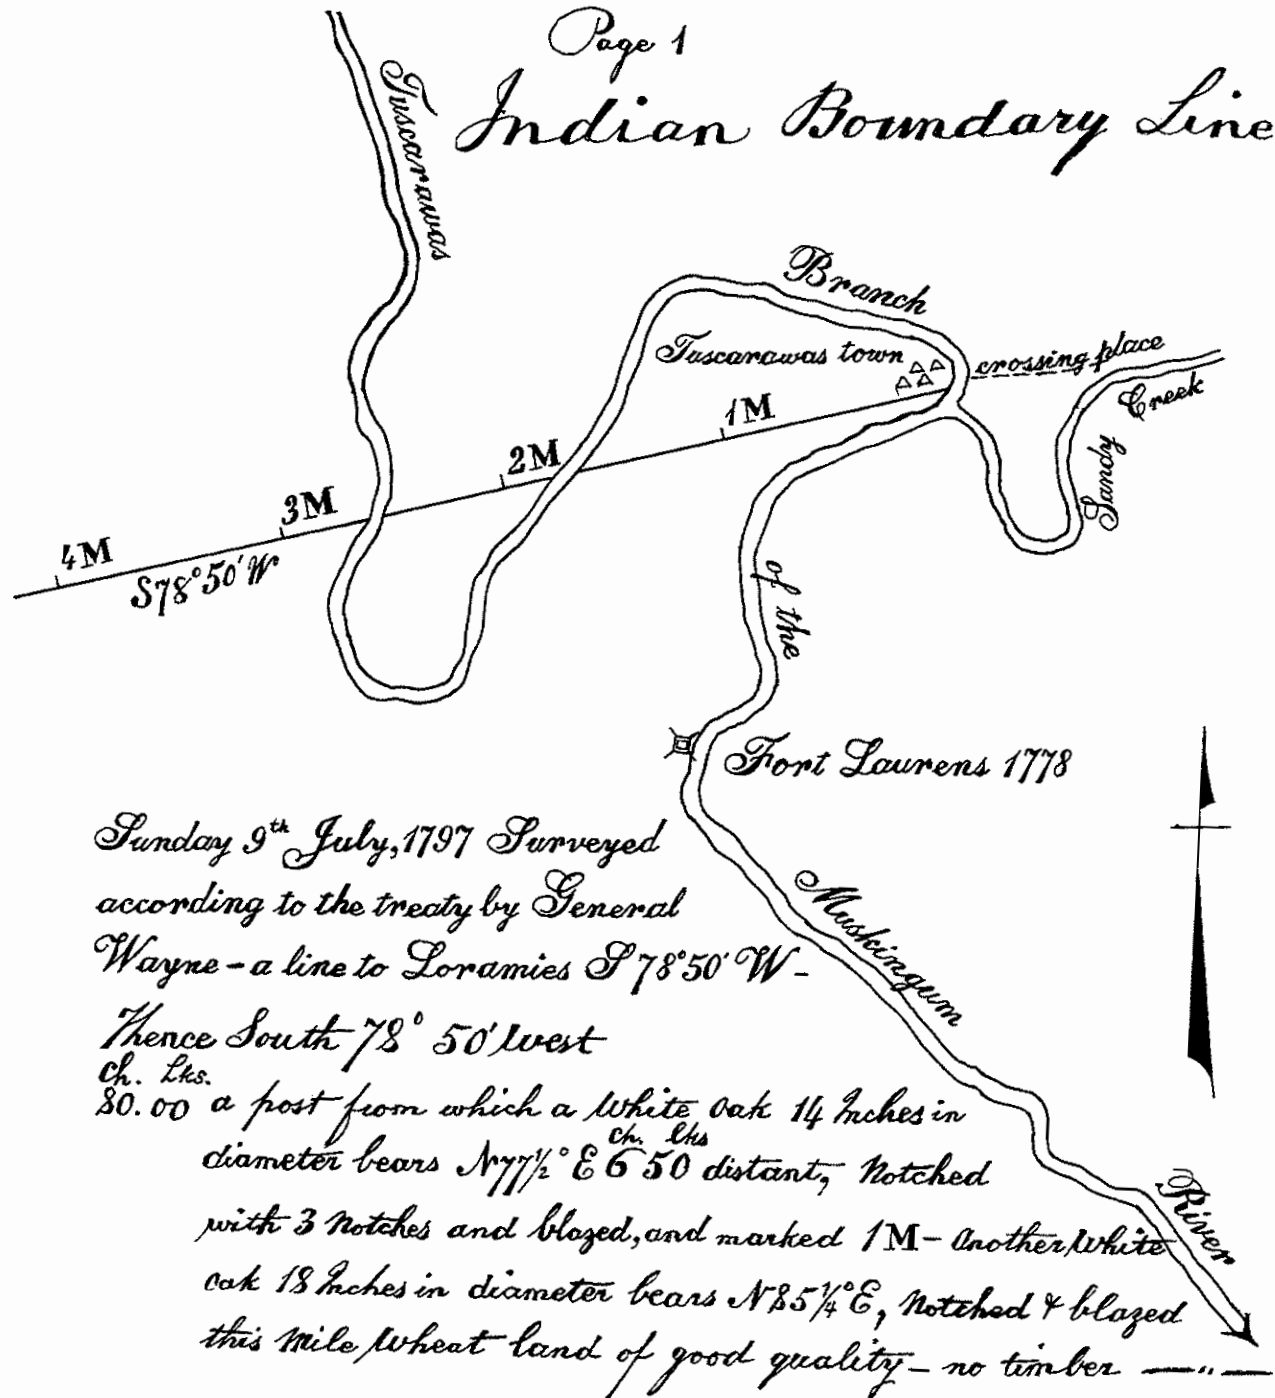 Page 1
Indian Boundary Line
Tuscarawas
Branch
Tuscarawas town
crossing place
Creek
Sandy
1M
2M
3M
4M
S78°50'W
of the
Fort Laurens 1778
Muskingum
River
Sunday 9th July, 1797 Surveyed
according to the treaty by General
Wayne - a line to Loramies S 78°50' W -
Thence South 78° 50' West
ch. Lks.
80.00 a post from which a White Oak 14 Inches in
diameter bears N77½° E 6 ch. 50 lks distant, Notched
with 3 Notches and blazed, and marked 1M - Another White
oak 18 Inches in diameter bears N85¼° E, Notched & blazed
this Mile Wheat land of good quality - no timber — " —